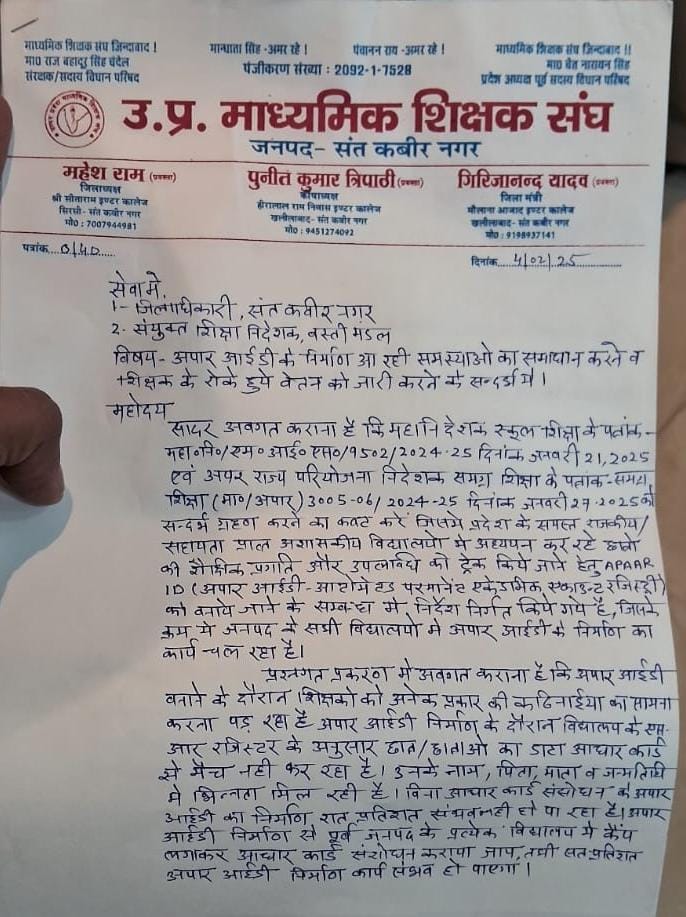 माध्यमिक शिक्षक संघ जिन्दाबाद !
मा0 राज बहादुर सिंह चंदेल
संरक्षक/सदस्य विधान परिषद
मान्धाता सिंह -अमर रहे !
पंचानन राय -अमर रहे !
पंजीकरण संख्या : 2092-1-7528
माध्यमिक शिक्षक संघ जिन्दाबाद !!
मा0 चेत नारायण सिंह
प्रदेश अध्यक्ष पूर्व सदस्य विधान परिषद
उ.प्र. माध्यमिक शिक्षक संघ
जनपद- संत कबीर नगर
महेश राम (प्रवक्ता)
जिलाध्यक्ष
श्री सीताराम इण्टर कालेज
सिरसी- संत कबीर नगर
मो0 : 7007944981
पुनीत कुमार त्रिपाठी (प्रवक्ता)
कोषाध्यक्ष
हीरालाल राम निवास इण्टर कालेज
खलीलाबाद- संत कबीर नगर
मो0 : 9451274092
गिरिजानन्द यादव (प्रवक्ता)
जिला मंत्री
मौलाना आजाद इण्टर कालेज
खलीलाबाद- संत कबीर नगर
मो0 : 9198937141
पत्रांक...
दिनांक 4/02/25
सेवा में,
1- जिलाधिकारी, संत कबीर नगर
2- संयुक्त शिक्षा निदेशक, बस्ती मंडल
विषय- अपार आईडी के निर्माण आ रही समस्याओ का समाधान करने व
शिक्षक के रोके हुये वेतन को जारी करने के सन्दर्भ में।
महोदय
सादर अवगत कराना है कि महानिदेशक स्कूल शिक्षा के पत्रांक-
महा०नि०/एम० आई० एस०/9502/2024-25 दिनांक जनवरी 21, 2025
एवं अपर राज्य परियोजना निदेशक समग्र शिक्षा के पत्रांक-समग्र
शिक्षा (मा०/अपार) 3005-06/2024-25 दिनांक जनवरी 27-2025 को
सन्दर्भ ग्रहण करने का कष्ट करें जिसमे प्रदेश के समस्त राजकीय/
सहायता प्राप्त अशासकीय विद्यालयो मे अध्ययन कर रहे छात्रो
की शैक्षिक प्रगति और उपलब्धि को ट्रेक किये जाने हेतु APAAR
ID (अपार आईडी-आटोमेटेड परमानेंट एकेडमिक एकाउन्ट रजिस्ट्री)
को बनाये जाने के सम्बन्ध मे निर्देश निर्गत किये गये है, जिसके
क्रम मे जनपद के सभी विद्यालयो मे अपार आईडी के निर्माण का
कार्य चल रहा है।
प्रश्नगत प्रकरण मे अवगत कराना है कि अपार आईडी
बनाने के दौरान शिक्षको को अनेक प्रकार की कठिनाईया का सामना
करना पड़ रहा है अपार आईडी निर्माण के दौरान विद्यालय के एस-
आर रजिस्टर के अनुसार छात्र/छात्राओ का डाटा आधार कार्ड
से मैच नही कर रहा है। उनके नाम, पिता, माता व जन्मतिथि
मे भिन्नता मिल रही है। बिना आधार कार्ड संशोधन के अपार
आईडी का निर्माण शत प्रतिशत संभव नही हो पा रहा है। अपार
आईडी निर्माण से पूर्व जनपद के प्रत्येक विद्यालय मे कैंप
लगाकर आधार कार्ड संशोधन कराया जाय, तभी शत-प्रतिशत
अपार आईडी निर्माण कार्य संभव हो पाएगा।